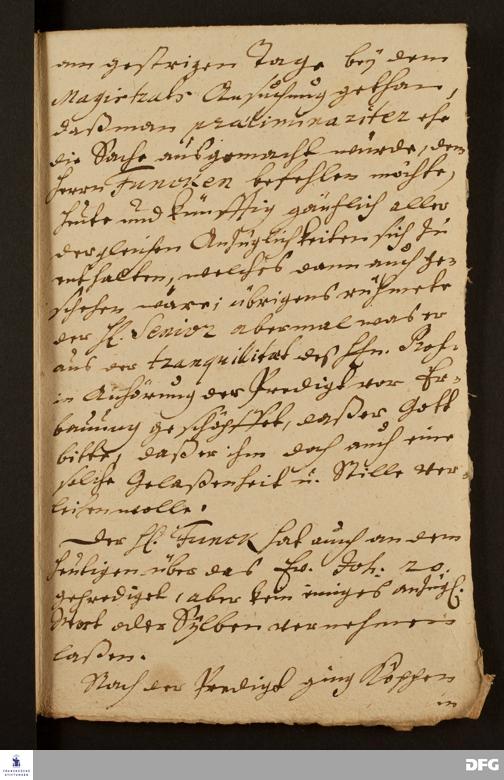 am gestrigen Tage bey dem
Magistrats Ansuchung gethan,
daßman præliminariter ehe
die Sache ausgemacht würde, dem
Herrn Funcken befehlen möchte,
heute und künfftig gäntzlich aller
dergleichen Anzüglichkeiten sich zu
enthalten, welches dann auch ge-
schehen wäre; übrigens rühmete
der H. Senior abermal was er
aus der tranquilität des Hn. Prof.
in Anhörung der Predigt vor Er-
bauung geschöpffet, daß er Gott
bitte, daß er ihm doch auch eine
solche Gelaßenheit u. Stille ver-
leihen wolle.
Der H. Funck hat auch an dem
heutigen über das Ev. Joh. 20.
geprediget, aber kein einiges anzügl.
Wort oder Sylben vernehmen
laßen.
Nach der Predigt ging Köppen
in
FRANCKESCHE
STIFTUNGEN
DFG